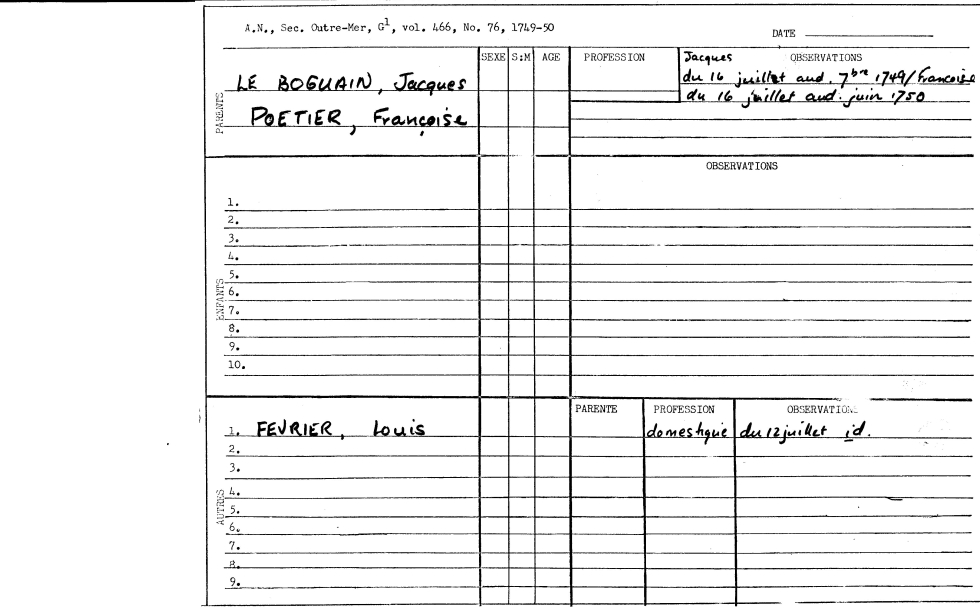 A.N., Sec. Outre-Mer, G1, vol. 466, No. 76, 1749-50
DATE
SEXE S:M AGE PROFESSION Jacques OBSERVATIONS
PARENTS
LE BOGUAIN, Jacques
du 16 juillet aud. 7bre 1749/Francoise
du 16 juillet aud. juin 1750
POETIER, Françoise
OBSERVATIONS
ENFANTS
1.
2.
3.
4.
5.
6.
7.
8.
9.
10.
PARENTE PROFESSION OBSERVATIONS
AUTRES
1. FEVRIER, Louis domestique du 12 juillet id.
2.
3.
4.
5.
6.
7.
8.
9.